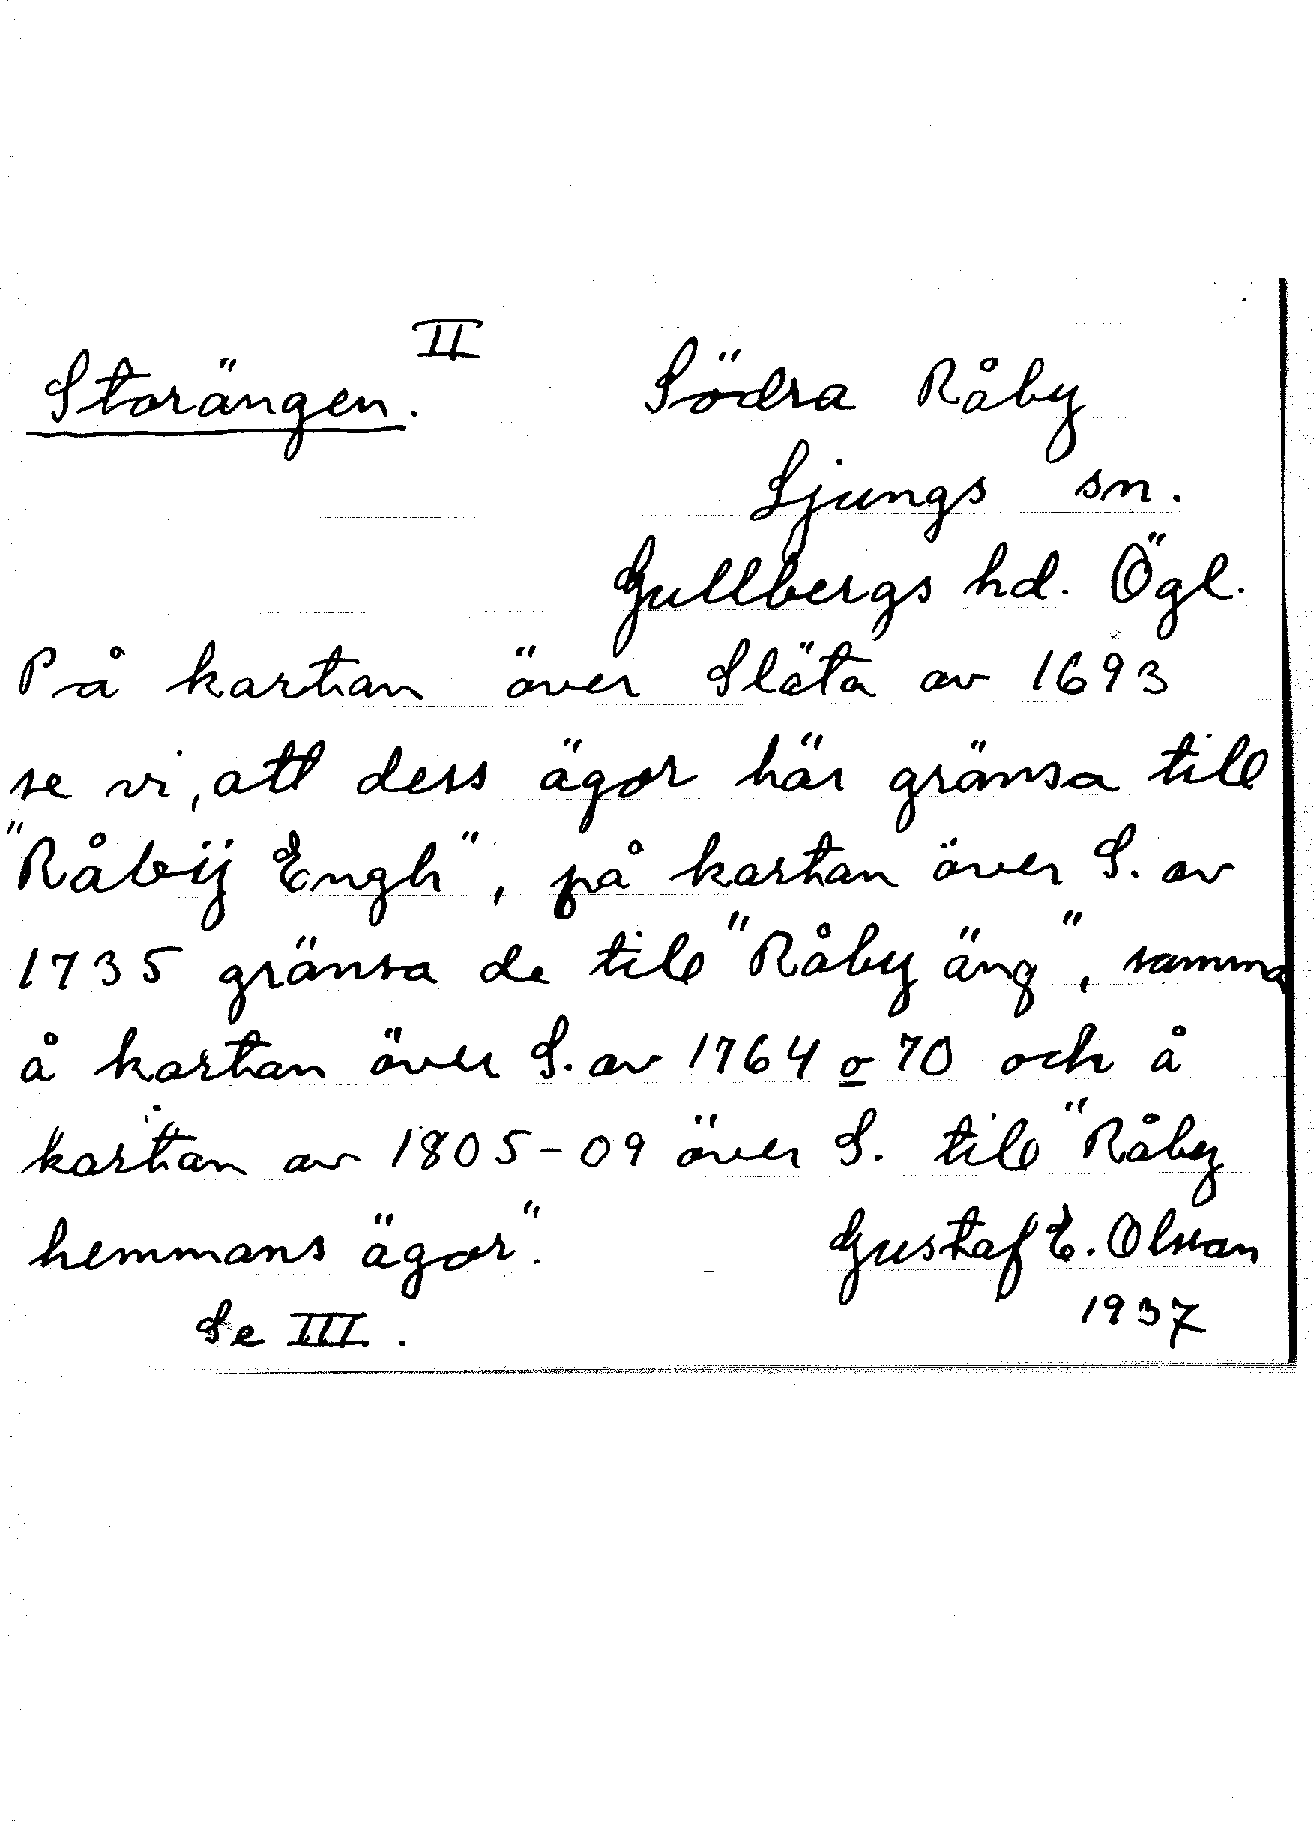 II
Storängen. Södra Råby
Ljungs sn.
Gullbergs hd. Ögl.
På kartan över Släta av 1693
se vi, att dess ägor här gränsa till
"Råbÿ Engh", på kartan över S. av
1735 gränsa de till "Råby äng", samma
å kartan över S. av 1764 o 70 och å
kartan av 1805-09 över S. till "Råby
hemmans ägor". Gustaf E. Olsson
Se III. 1937